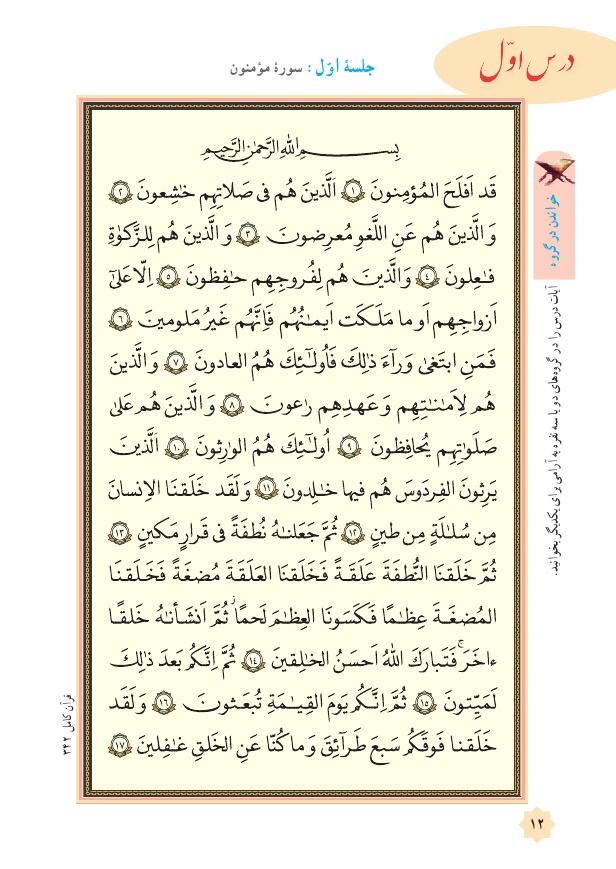 درس اوّل
جلسهٔ اوّل : سورهٔ مؤمنون
بِسمِ اللهِ الرَّحمٰنِ الرَّحيمِ
قَد اَفلَحَ المُؤمِنونَ ﴿١﴾ اَلَّذينَ هُم فى صَلاتِهِم خٰشِعونَ ﴿٢﴾
وَ الَّذينَ هُم عَنِ اللَّغوِ مُعرِضونَ ﴿٣﴾ وَ الَّذينَ هُم لِلزَّكوٰةِ
فٰعِلونَ ﴿٤﴾ وَ الَّذينَ هُم لِفُروجِهِم حٰفِظونَ ﴿٥﴾ اِلّا عَلىٰٓ
اَزواجِهِم اَو ما مَلَكَت اَيمٰنُهُم فَاِنَّهُم غَيرُ مَلومينَ ﴿٦﴾
فَمَنِ ابتَغىٰ وَرآءَ ذٰلِكَ فَاُولٰٓئِكَ هُمُ العادونَ ﴿٧﴾ وَ الَّذينَ
هُم لِاَمٰنٰتِهِم وَ عَهدِهِم رٰعونَ ﴿٨﴾ وَ الَّذينَ هُم عَلىٰ
صَلَوٰتِهِم يُحافِظونَ ﴿٩﴾ اُولٰٓئِكَ هُمُ الوٰرِثونَ ﴿١٠﴾ اَلَّذينَ
يَرِثونَ الفِردَوسَ هُم فيها خٰلِدونَ ﴿١١﴾ وَ لَقَد خَلَقنَا الاِنسانَ
مِن سُلٰلَةٍ مِن طينٍ ﴿١٢﴾ ثُمَّ جَعَلنٰهُ نُطفَةً فى قَرارٍ مَكينٍ ﴿١٣﴾
ثُمَّ خَلَقنَا النُّطفَةَ عَلَقَةً فَخَلَقنَا العَلَقَةَ مُضغَةً فَخَلَقنَا
المُضغَةَ عِظٰمًا فَكَسَونَا العِظٰمَ لَحمًا ثُمَّ اَنشَأنٰهُ خَلقًا
ءاخَرَ ۚ فَتَبارَكَ اللهُ اَحسَنُ الخٰلِقينَ ﴿١٤﴾ ثُمَّ اِنَّكُم بَعدَ ذٰلِكَ
لَمَيِّتونَ ﴿١٥﴾ ثُمَّ اِنَّكُم يَومَ القِيٰمَةِ تُبعَثونَ ﴿١٦﴾ وَ لَقَد
خَلَقنا فَوقَكُم سَبعَ طَرآئِقَ وَ ما كُنّا عَنِ الخَلقِ غٰفِلينَ ﴿١٧﴾
خواندن در گروه
آیات درس را در گروه‌های دو یا سه نفره به آرامی برای یکدیگر بخوانید.
قرآن کامل ۳۴۲
۱۲